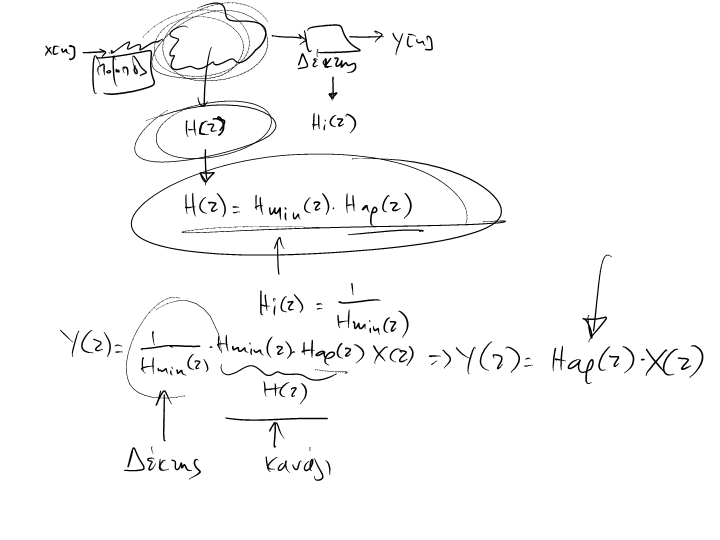 x[n] → Πομπός → Δέκτης → Y[n]
H(z) Hi(z)
H(z) = Hmin(z) · Hap(z)
Hi(z) = 1 / Hmin(z)
Y(z) = 1 / Hmin(z) · Hmin(z) · Hap(z) X(z) ⇒ Y(z) = Hap(z) · X(z)
H(z)
Δέκτης κανάλι